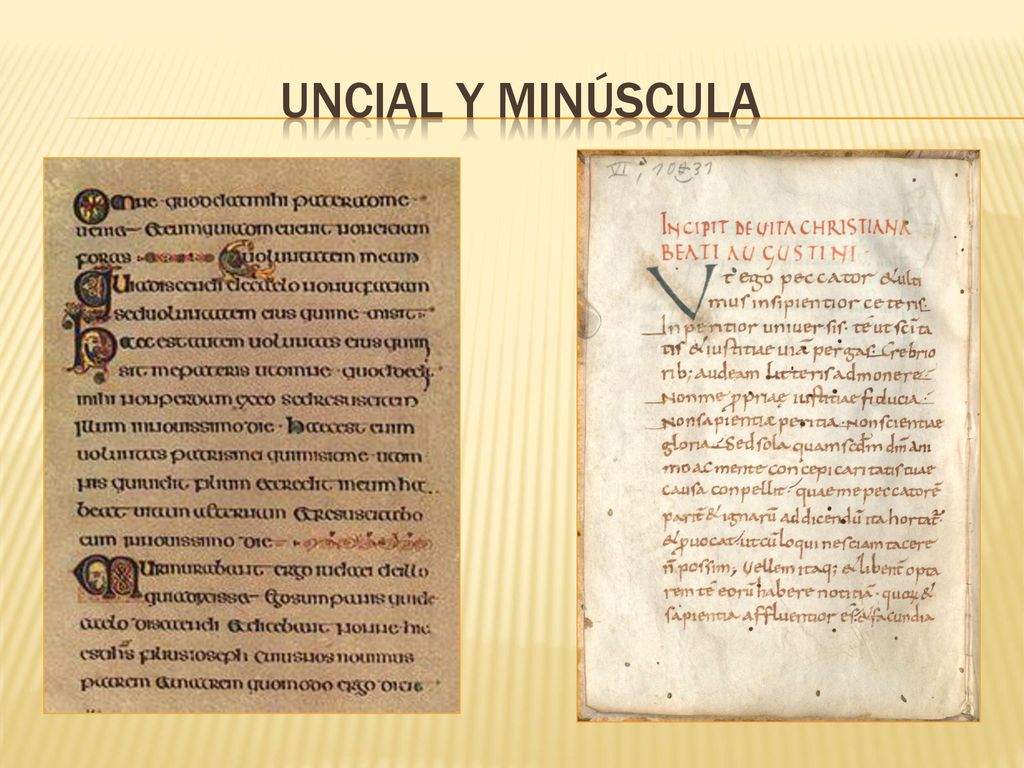 UNCIAL Y MINÚSCULA
Omne quod dat mihi pater ad me
ueniet & eum qui ad me uenit non eiciam
foras uoluntatem meam
Quia discendi de caelo non ut faciam
sed uoluntatem eius qui me misit
Haec est autem uoluntas eius qui m
sit me patris ut omne quod dedi
mihi non perdam ex eo sed resuscitem
illum in nouissimo die · Haec est enim
uoluntas patris mei qui misit me ut om
nis qui uidit filium & credit in eum ha
beat uitam aeternam & resuscitabo
eum in nouissimo die
Murmurabant ergo iudaei de illo
quia dixisset Ego sum panis qui de
caelo discendi & dicebant nonne hic
est filius ioseph cuius nos nouimus
patrem & matrem quomodo ergo dicit
VI, 10 31
INCIPIT DE VITA CHRISTIANA
BEATI AUGUSTINI ·
Vt ego peccator & ulti
mus insipientior ceteris.
Inperitior universis. te ut scīta
tis & iustitiae uiā pergas. Crebrio
rib; audeam litteris admonere
Nonme ꝓpriae iustitiae fiducia ·
non sapientiae peritia · Non scientiae
gloria. Sed sola quam scdm dm̄ ani
mo ac mente concepi caritatis tuae
causa conpellit · quae me peccatorē
parit̄ & ignarū ad dicendū ita hortat̄ ·
& ꝓvocat, ut cū loqui nesciam tacere
n̄ possim; Vellem itaq; & libent̄ opta
rem tē eorū habere notitiā · quorū &
sapientia affluentior ēs & facundia